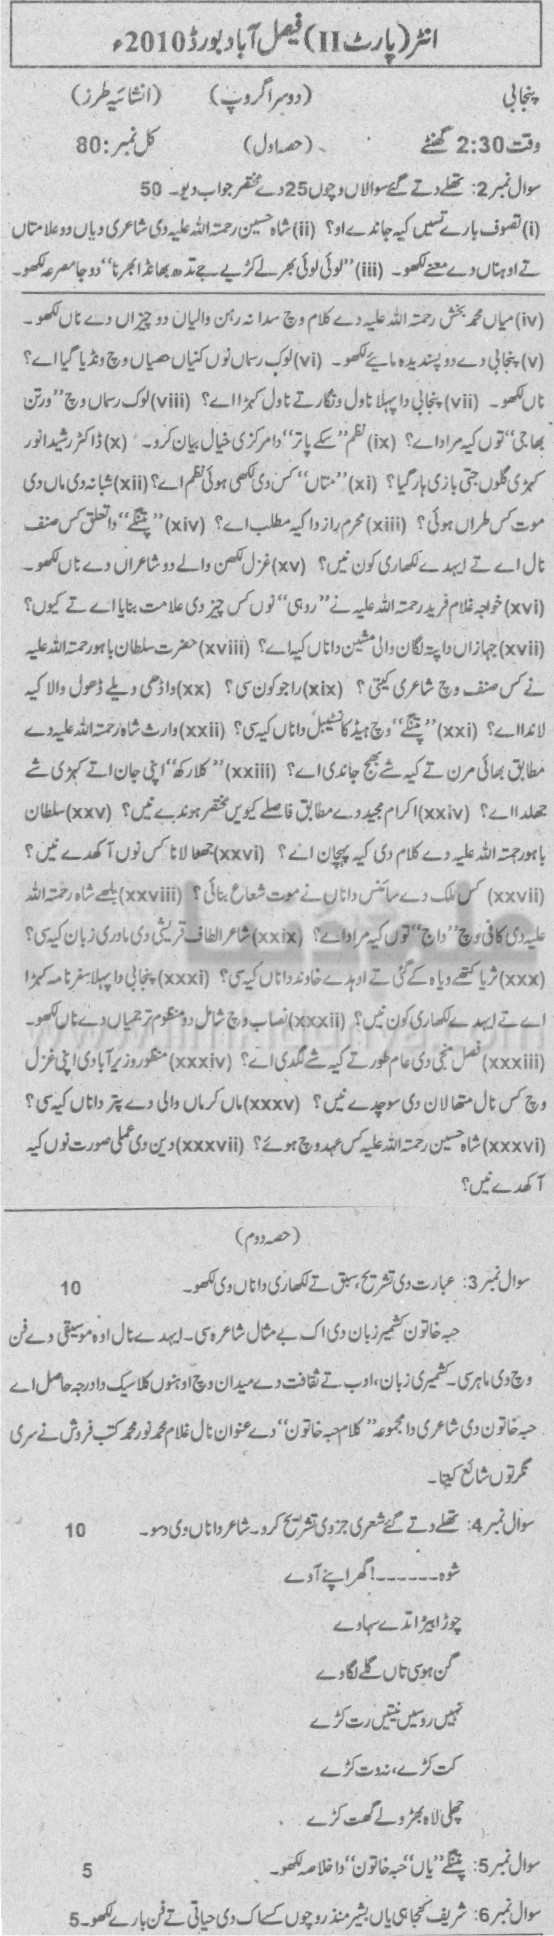 انٹر (پارٹ II) فیصل آباد بورڈ 2010ء
پنجابی (دوسرا گروپ) (انشائیہ طرز)
وقت 2:30 گھنٹے (حصہ اول) کل نمبر: 80
سوال نمبر 2: تھلے دتے گئے سوالاں وچوں 25 دے مختصر جواب دیو۔ 50
(i) تصوف بارے تسیں کیہ جاندے او؟ (ii) شاہ حسین رحمتہ اللہ علیہ دی شاعری ویاں دو علامتاں
تے اوہناں دے معنے لکھو۔ (iii) ”لوئی لوئی بھر لے کڑیے جے تدھ بھانڈا بھرنا“ دوجا مصرعہ لکھو۔
(iv) میاں محمد بخش رحمتہ اللہ علیہ دے کلام وچ سدا نہ رہن والیاں دو چیزاں دے ناں لکھو۔
(v) پنجابی دے دو پسندیدہ ماہیے لکھو۔ (vi) لوک رسماں نوں کنیاں حصیاں وچ ونڈیا گیا اے؟
ناں لکھو۔ (vii) پنجابی دا پہلا ناول ونگار تے ناول کہڑا اے؟ (viii) لوک رسماں وچ ”ورتن
بھاجی“ توں کیہ مراد اے؟ (ix) نظم ”سکے پاتر“ دا مرکزی خیال بیان کرو۔ (x) ڈاکٹر رشید انور
کہڑی گلوں جتی بازی ہار گیا؟ (xi) ”متاں“ کس دی لکھی ہوئی نظم اے؟ (xii) شبانہ دی ماں دی
موت کس طراں ہوئی؟ (xiii) محرم راز دا کیہ مطلب اے؟ (xiv) ”پتنگے“ دا تعلق کس صنف
نال اے تے ایہدے لکھاری کون نیں؟ (xv) غزل لکھن والے دو شاعراں دے ناں لکھو۔
(xvi) خواجہ غلام فرید رحمتہ اللہ علیہ نے ”روہی“ نوں کس چیز دی علامت بنایا اے تے کیوں؟
(xvii) جہازاں دا پتہ لگان والی مشین دا ناں کیہ اے؟ (xviii) حضرت سلطان باہو رحمتہ اللہ علیہ
نے کس صنف وچ شاعری کیتی؟ (xix) راجو کون سی؟ (xx) واڈھی ویلے ڈھول والا کیہ
لاندا اے؟ (xxi) ”پتنگے“ وچ ہیڈ کانسٹیبل دا ناں کیہ سی؟ (xxii) وارث شاہ رحمتہ اللہ علیہ دے
مطابق بھائی مرن تے کیہ شے بھج جاندی اے؟ (xxiii) ”کلا رکھ“ اپنی جان اتے کہڑی شے
جھلدا اے؟ (xxiv) اکرام مجید دے مطابق فاصلے کیویں مختصر ہوندے نیں؟ (xxv) سلطان
باہو رحمتہ اللہ علیہ دے کلام دی کیہ پہچان اے؟ (xxvi) جھھا لانا کس نوں آکھدے نیں؟
(xxvii) کس ملک دے سائنس داناں نے موت شعاع بنائی؟ (xxviii) بلھے شاہ رحمتہ اللہ
علیہ دی کافی وچ ”داج“ توں کیہ مراد اے؟ (xxix) شاعر الطاف قریشی دی مادری زبان کیہ سی؟
(xxx) ثریا کتھے ویاہ کے گئی تے اوہدے خاوند دا ناں کیہ سی؟ (xxxi) پنجابی دا پہلا سفرنامہ کہڑا
اے تے ایہدے لکھاری کون نیں؟ (xxxii) نصاب وچ شامل دو منظوم ترجمیاں دے ناں لکھو۔
(xxxiii) فصل منجی دی عام طور تے کیہ شے لگدی اے؟ (xxxiv) منظور وزیر آبادی اپنی غزل
وچ کس نال متھا لان دی سوچدے نیں؟ (xxxv) ماں کرماں والی دے پتر دا ناں کیہ سی؟
(xxxvi) شاہ حسین رحمتہ اللہ علیہ کس عہد وچ ہوئے؟ (xxxvii) دین دی عملی صورت نوں کیہ
آکھدے نیں؟
(حصہ دوم)
سوال نمبر 3: عبارت دی تشریح، سبق تے لکھاری دا ناں وی لکھو۔ 10
حبہ خاتون کشمیر زبان دی اک بے مثال شاعرہ سی۔ ایہدے نال اوہ موسیقی دے فن
وچ وی ماہر سی۔ کشمیری زبان، ادب تے ثقافت دے میدان وچ اوہنوں کلاسیک دا درجہ حاصل اے
حبہ خاتون دی شاعری دا مجموعہ ”کلام حبہ خاتون“ دے عنوان نال غلام محمد نور محمد کتب فروش نے سری
نگر توں شائع کیتا۔
سوال نمبر 4: تھلے دتے گئے شعری جزو دی تشریح کرو۔ شاعر دا ناں وی دسو۔ 10
شوہ ------! گھر اپنے آوے
چوڑا بیڑا تدے سہاوے
گن ہوسی تاں گلے لگاوے
نہیں روسیں نیتیں رت کڑے
کت کڑے، نہ وت کڑے
چھلی لاہ بھڑولے گھت کڑے
سوال نمبر 5: پتنگے ”یاں“ حبہ خاتون“ دا خلاصہ لکھو۔ 5
سوال نمبر 6: شریف کنجاہی یاں بشیر منذر وچوں کسے اک دی حیاتی تے فن بارے لکھو۔ 5